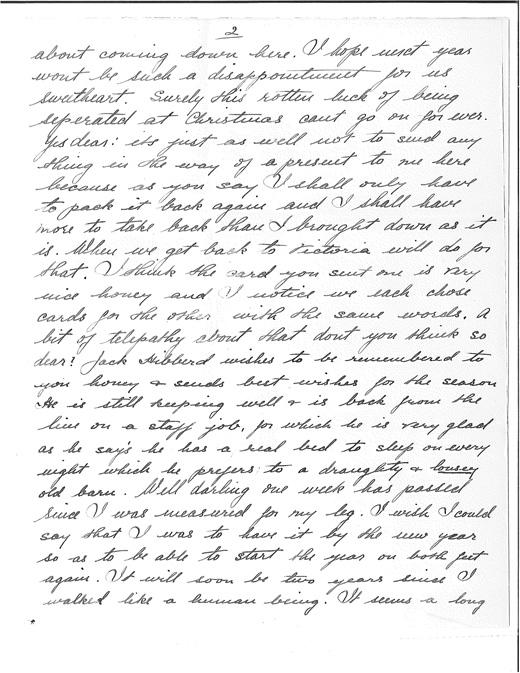 2
about coming down here. I hope next year
wont be such a disappointment for us
sweetheart. Surely this rotten luck of being
seperated at Christmas cant go on for ever.
Yes dear: its just as well not to send any
thing in the way of a present to me here
because as you say I shall only have
to pack it back again and I shall have
more to take back than I brought down as it
is. When we get back to Victoria will do for
that. I think the card you sent me is very
nice honey and I notice we each chose
cards for the other with the same words. A
bit of telepathy about that dont you think so
dear? Jack Hibberd wishes to be remembered to
you honey & sends best wishes for the season
He is still keeping well & is back from the
line on a staff job, for which he is very glad
as he say's he has a real bed to sleep on every
night which he prefers to a draughty & lousey
old barn. Well darling one week has passed
since I was measured for my leg. I wish I could
say that I was to have it by the new year
so as to be able to start the year on both feet
again. It will soon be two years since I
walked like a human being. It seems a long